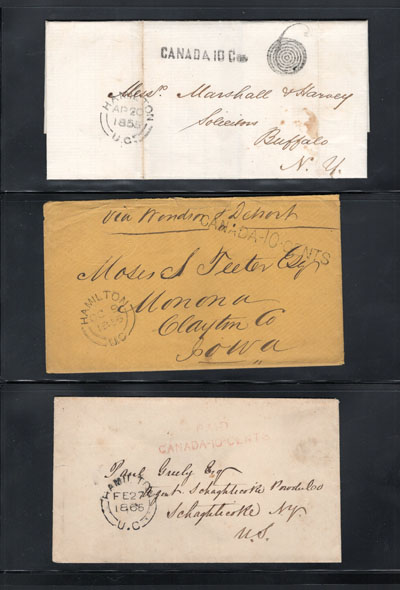 CANADA 10 Cts.
Messrs. Marshall & Harvey
Solicitors
Buffalo
N. Y.
HAMILTON
AP 20
1855
U.C.
via Windsor & Detroit
CANADA-10-CENTS
Moses S Teeter Esq
Monona
Clayton Co
Iowa
HAMILTON
1855
U.C.
PAID
CANADA-10-CENTS
Paul Grely Esq
Agent Schaghticoke Powder Co
Schaghticoke NY.
U.S.
HAMILTON
FE 27
1855
U.C.